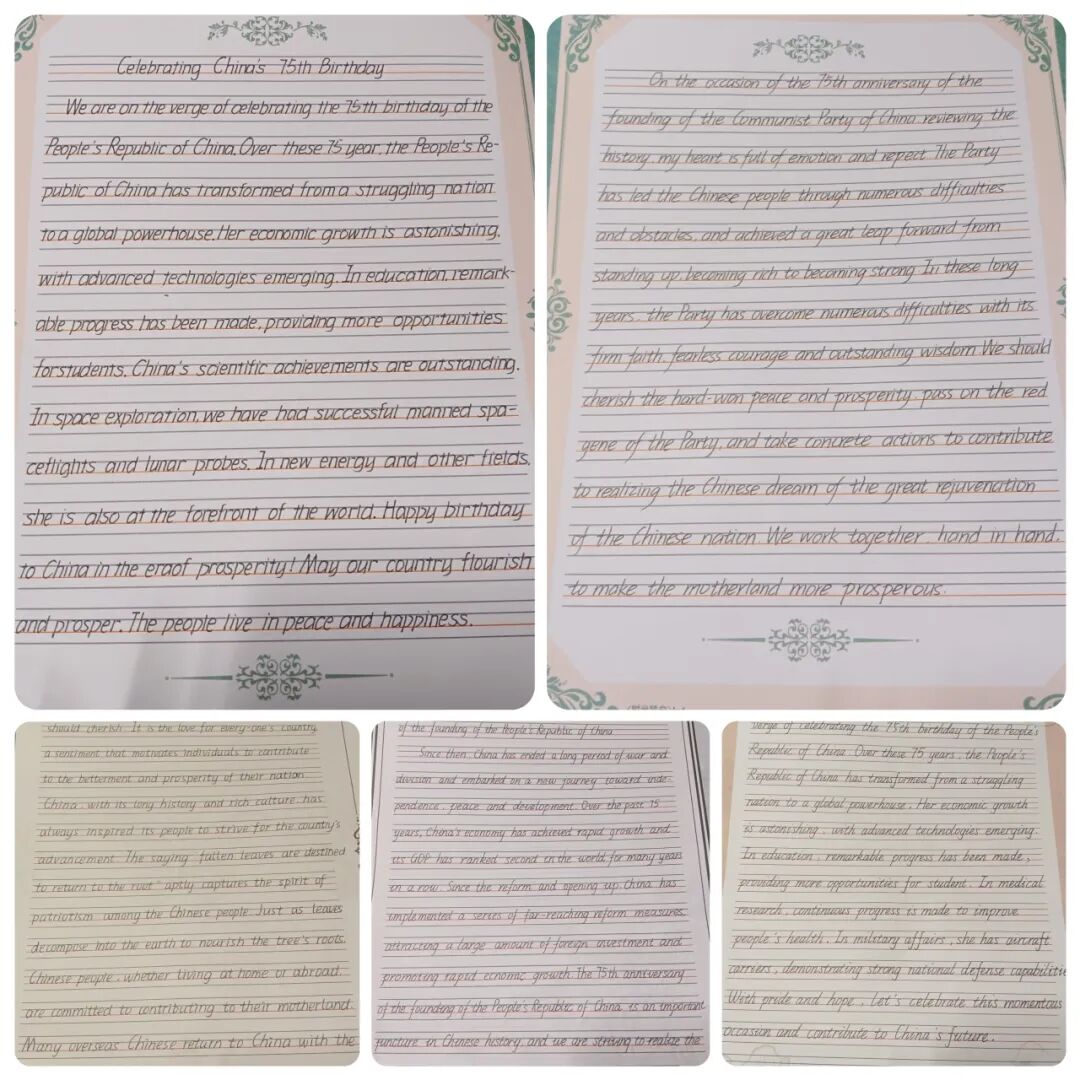 Celebrating China's 75th Birthday
We are on the verge of celebrating the 75th birthday of the
People's Republic of China. Over these 75 year, the People's Re-
public of China has transformed from a struggling nation
to a global powerhouse. Her economic growth is astonishing,
with advanced technologies emerging. In education, remark-
able progress has been made, providing more opportunities
for students. China's scientific achievements are outstanding.
In space exploration, we have had successful manned spa-
ceflights and lunar probes. In new energy and other fields,
she is also at the forefront of the world. Happy birthday
to China in the era of prosperity! May our country flourish
and prosper. The people live in peace and happiness.
On the occasion of the 75th anniversary of the
founding of the Communist Party of China, reviewing the
history, my heart is full of emotion and repect. The Party
has led the Chinese people through numerous difficulties
and obstacles, and achieved a great leap forward from
standing up, becoming rich to becoming strong. In these long
years, the Party has overcome numerous difficulties with its
firm faith, fearless courage and outstanding wisdom. We should
cherish the hard-won peace and prosperity, pass on the red
gene of the Party, and take concrete actions to contribute
to realizing the Chinese dream of the great rejuvenation
of the Chinese nation. We work together, hand in hand,
to make the motherland more prosperous.
should cherish. It is the love for every-one's country,
a sentiment that motivates individuals to contribute
to the betterment and prosperity of their nation.
China, with its long history and rich culture, has
always inspired its people to strive for the country's
advancement. The saying "fallen leaves are destined
to return to the root" aptly captures the spirit of
patriotism among the Chinese people. Just as leaves
decompose into the earth to nourish the tree's roots,
Chinese people, whether living at home or abroad,
are committed to contributing to their motherland.
Many overseas Chinese return to China with the
of the founding of the People's Republic of China
Since then, China has ended a long period of war and
division and embarked on a new journey toward inde-
pendence, peace and development. Over the past 75
years, China's economy has achieved rapid growth and
its GDP has ranked second in the world for many years
in a row. Since the reform and opening up, China has
implemented a series of far-reaching reform measures,
attracting a large amount of foreign investment and
promoting rapid econmic growth. The 75th anniversary
of the founding of the People's Republic of China is an important
juncture in Chinese history, and we are striving to realize the
verge of celebrating the 75th birthday of the People's
Republic of China. Over these 75 years, the People's
Republic of China has transformed from a struggling
nation to a global powerhouse. Her economic growth
is astonishing, with advanced technologies emerging.
In education, remarkable progress has been made,
providing more opportunities for student. In medical
research, continuous progress is made to improve
people's health. In military affairs, she has aircraft
carriers, demonstrating strong national defense capabilitie
With pride and hope, let's celebrate this momentous
occasion and contribute to China's future.